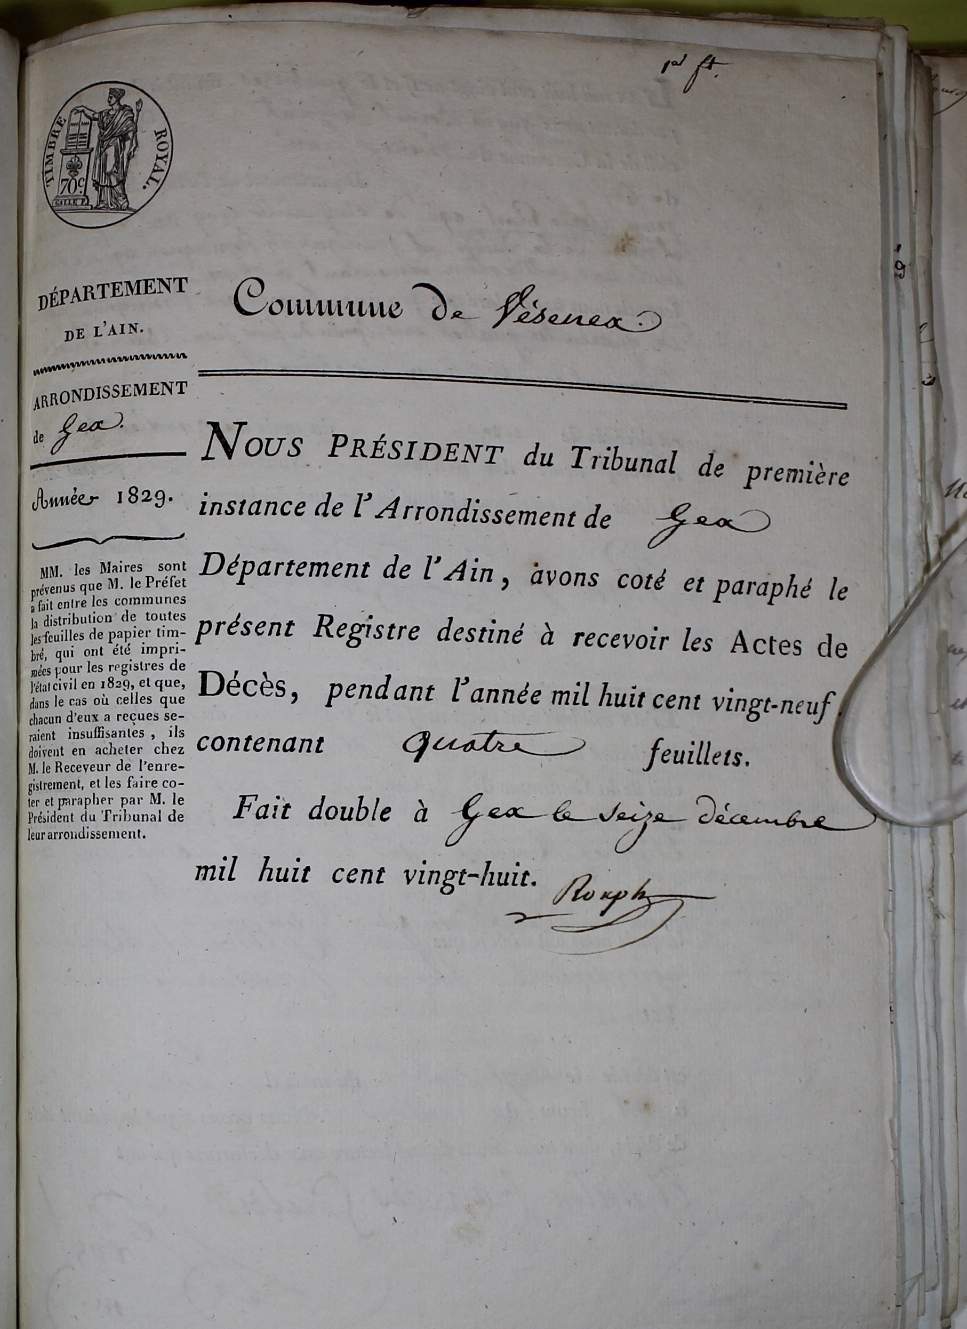 1er ft.
TIMBRE ROYAL.
70c
DÉPARTEMENT
DE L'AIN.
ARRONDISSEMENT
de Gex.
Année 1829.
MM. les Maires sont
prévenus que M. le Préfet
a fait entre les communes
la distribution de toutes
les feuilles de papier tim-
bré, qui ont été impri-
mées pour les registres de
l'état civil en 1829, et que,
dans le cas où celles que
chacun d'eux a reçues se-
raient insuffisantes, ils
doivent en acheter chez
M. le Receveur de l'enre-
gistrement, et les faire co-
ter et parapher par M. le
Président du Tribunal de
leur arrondissement.
Commune De Vésenex.
NOUS PRÉSIDENT du Tribunal de première
instance de l'Arrondissement de Gex
Département de l'Ain, avons coté et paraphé le
présent Registre destiné à recevoir les Actes de
Décès, pendant l'année mil huit cent vingt-neuf,
contenant quatre feuillets.
Fait double à Gex le seize décembre
mil huit cent vingt-huit.